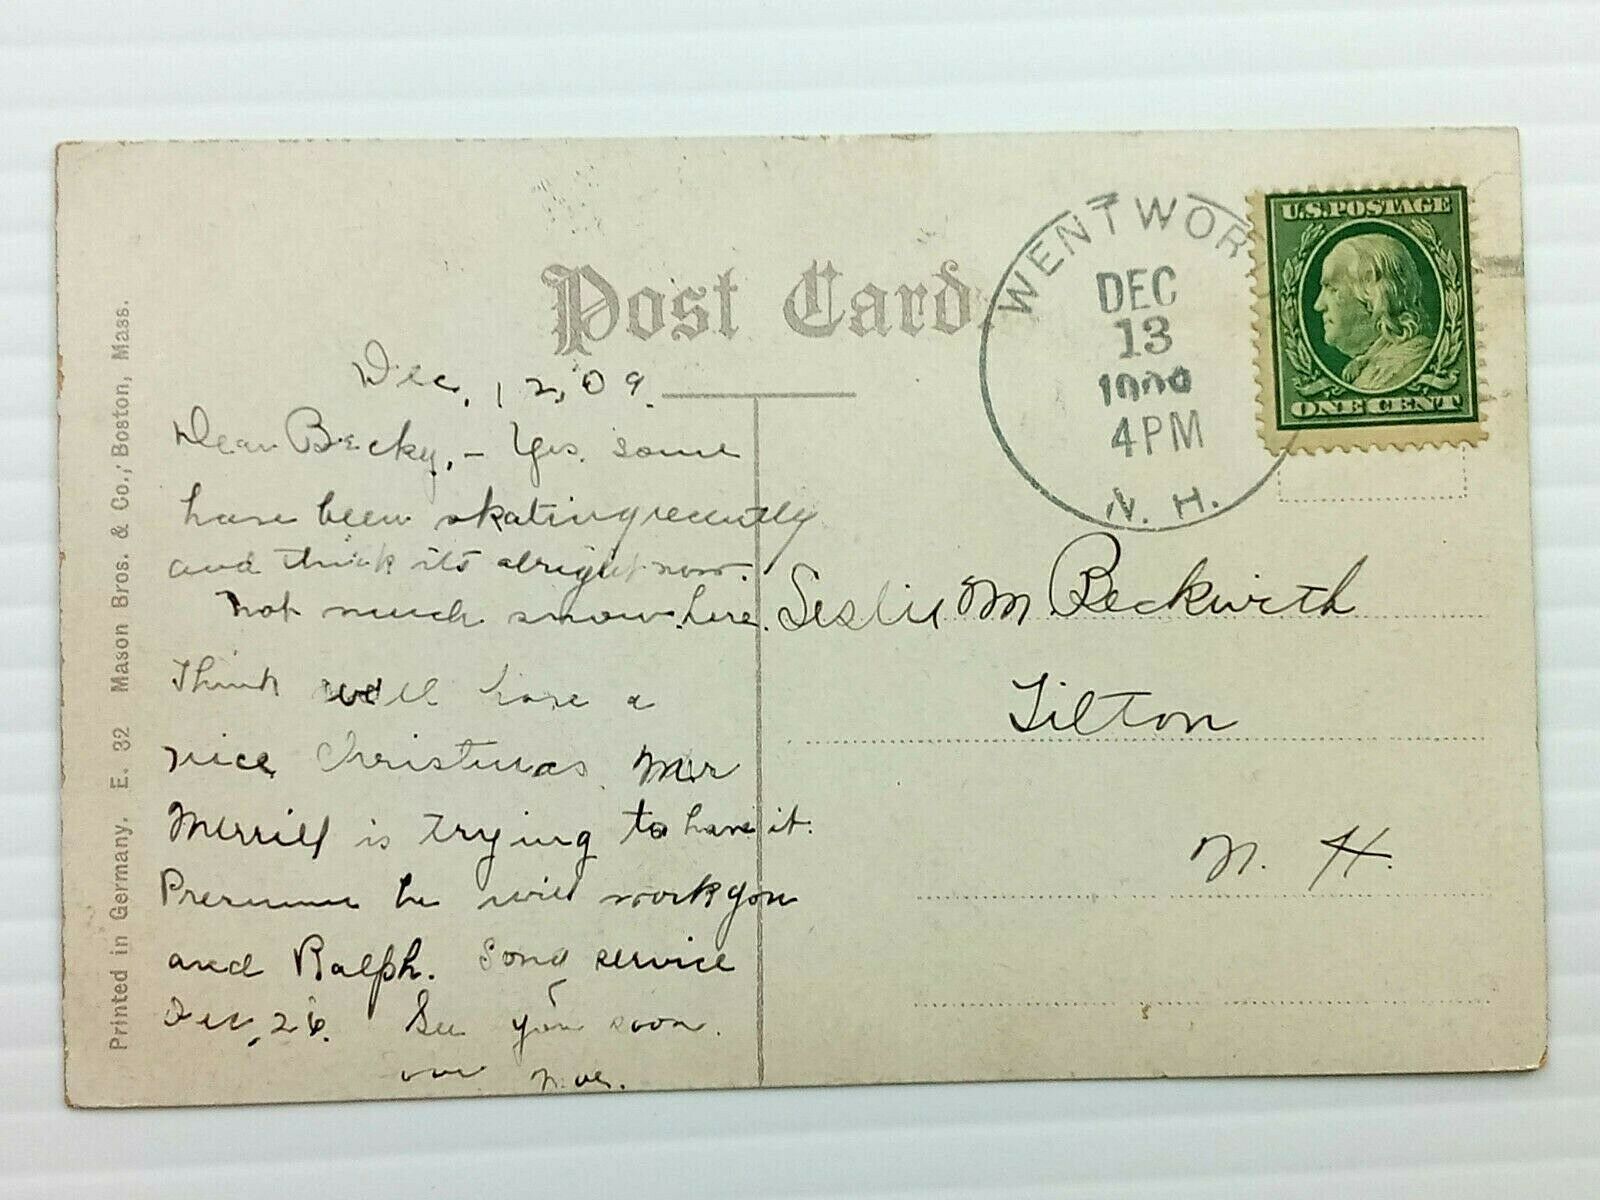 Post Card
WENTWOR
DEC
13
4PM
N. H.
U.S. POSTAGE
ONE CENT
Dec, 12, 09.
Dear Becky, - Yes, some
have been skating recently
and think its alright now.
Not much snow here.
Think we'll have a
nice Christmas.
Merrill is trying to have it.
he will work you
and Ralph. Song service
Dec, 26. See you soon.
Leslie M. Beckwith
Tilton
N. H.
Printed in Germany. E. 32 Mason Bros. & Co., Boston, Mass.